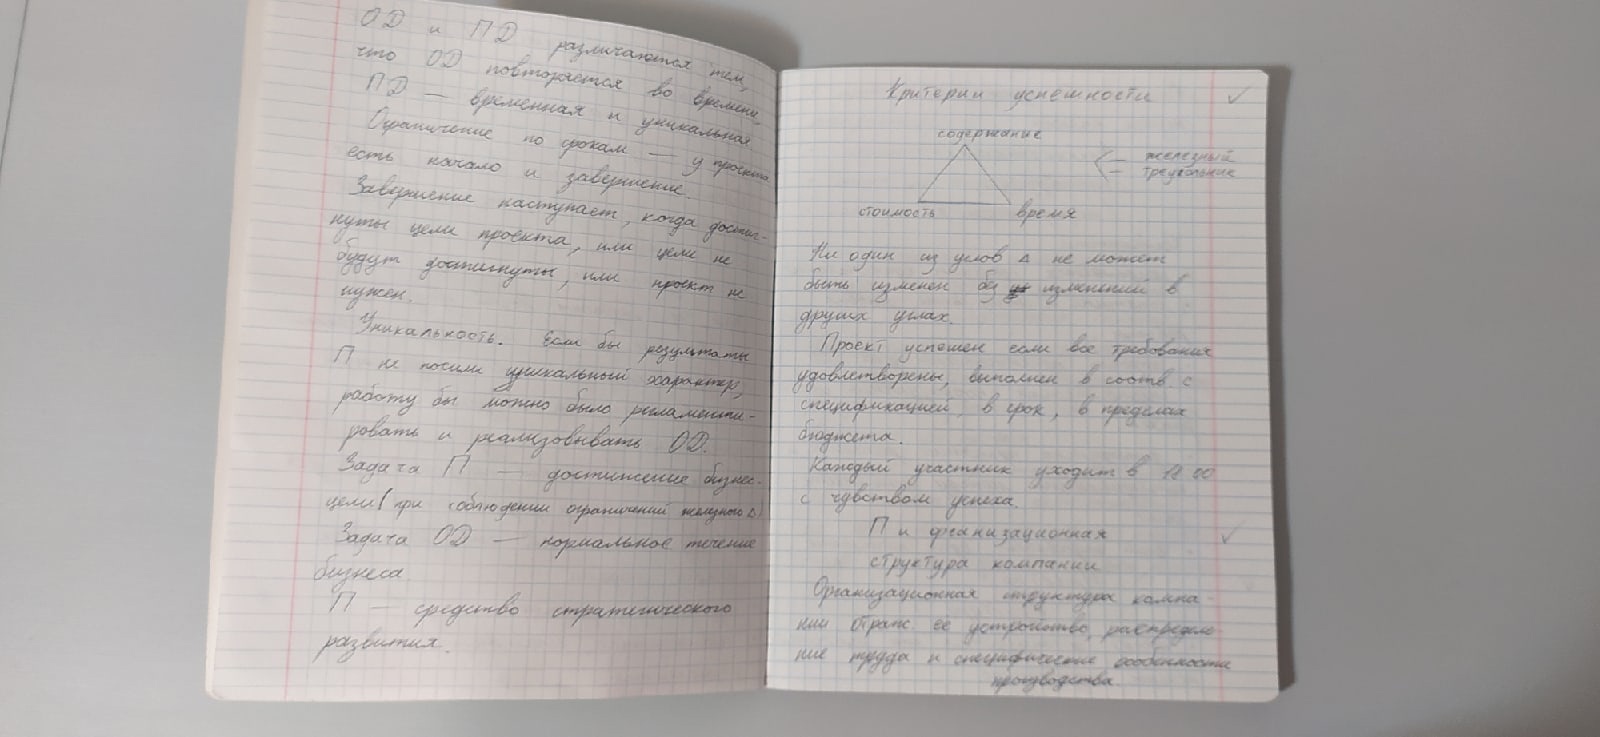 ОД и ПД различаются тем,
что ОД повторяется во времени,
ПД — временная и уникальная
Ограничение по срокам — у проекта
есть начало и завершение.
Завершение наступает, когда достиг-
нуты цели проекта, или цели не
будут достигнуты, или проект не
нужен.
Уникальность. Если бы результаты
П не носили уникальный характер,
работу бы можно было регламенти-
ровать и реализовывать ОД.
Задача П — достижение бизнес-
цели (при соблюдении ограничений железного Δ)
Задача ОД — нормальное течение
бизнеса.
П — средство стратегического
развития.
Критерии успешности ✓
содержание
железный
треугольник
стоимость время
Ни один из углов Δ не может
быть изменен без изменений в
других углах.
Проект успешен если все требования
удовлетворены, выполнен в соотв с
спецификацией, в срок, в пределах
бюджета.
Каждый участник уходит в 18 00
с чувством успеха.
П и организационная ✓
структура компании
Организационная структура компа-
нии отраж. её устройство, распределе-
ние труда и специфические особенности
производства.